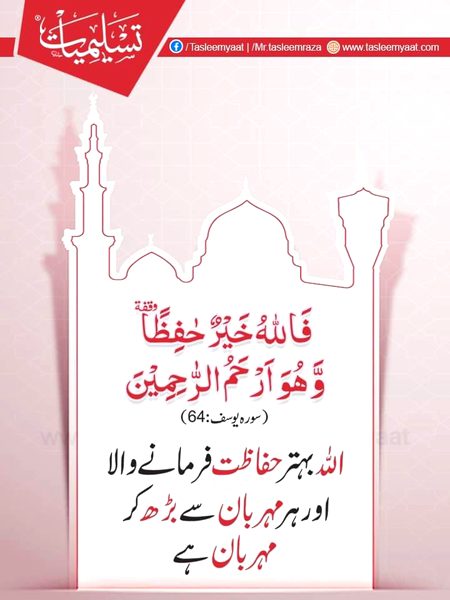 تسلیمیات
/Tasleemyaat | /Mr.tasleemraza www.tasleemyaat.com
فَاللّٰهُ خَیْرٌ حٰفِظًا۪ وقفة
وَّ هُوَ اَرْحَمُ الرّٰحِمِیْنَ
(سورہ یوسف:64)
اللہ بہتر حفاظت فرمانے والا
اور ہر مہربان سے بڑھ کر
مہربان ہے